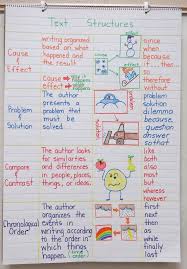 Text Structures
Cause
&
Effect
writing organized
based on what
happened and
the result.
cause → why it happens
effect → what happens
since
because
then...so
therefore
without
Problem
&
Solution
The author
presents a
problem that
must be
solved.
problem
solution
dilemma
because
question
answer
so that
Compare
&
Contrast
The author looks
for similarities
and differences
in people, places,
things, or ideas.
like
both
also
most
but
whereas
however
Chronological
Order
The author
organizes the
events in
writing according
to the order in
which things
happen.
first
next
then
as
while
finally
last